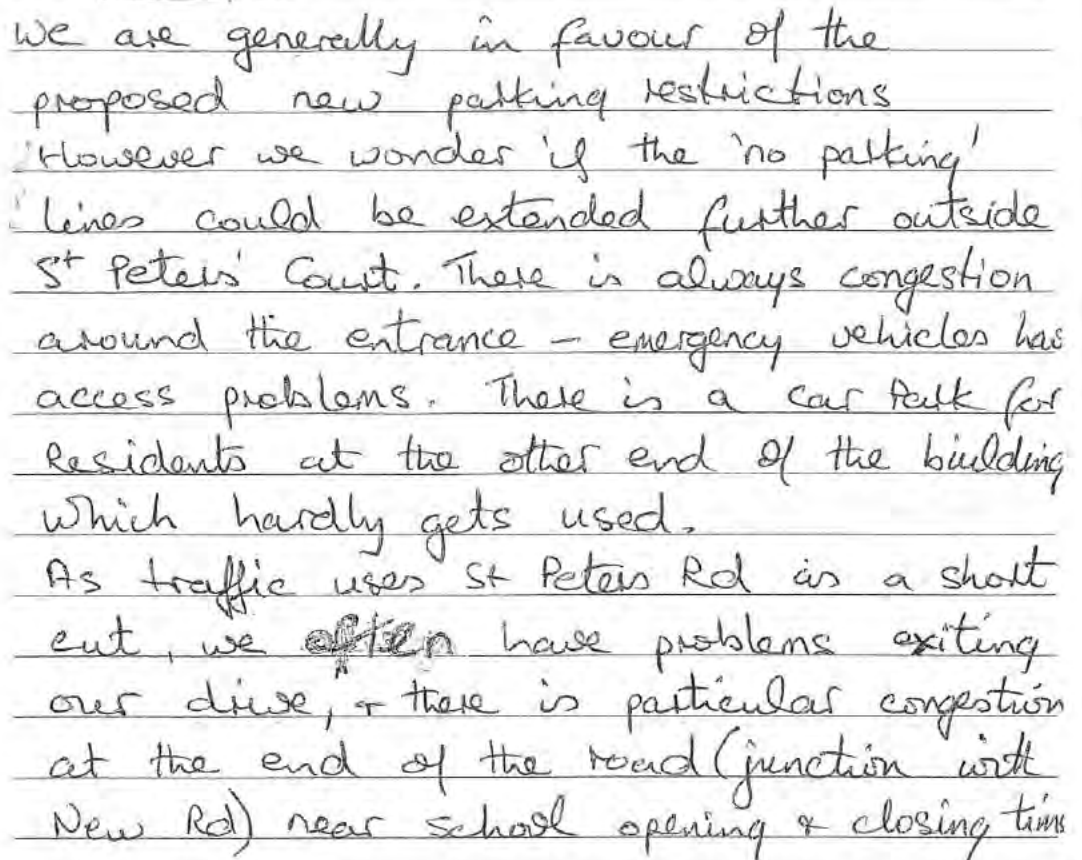 We are generally in favour of the
proposed new parking restrictions
However we wonder if the 'no parking'
lines could be extended further outside
St Peters' Court. There is always congestion
around the entrance - emergency vehicles has
access problems. There is a car Park for
Residents at the other end of the building
which hardly gets used.
As traffic uses St Peters Rd as a short
cut, we often have problems exiting
our drive, + there is particular congestion
at the end of the road (junction with
New Rd) near school opening & closing times